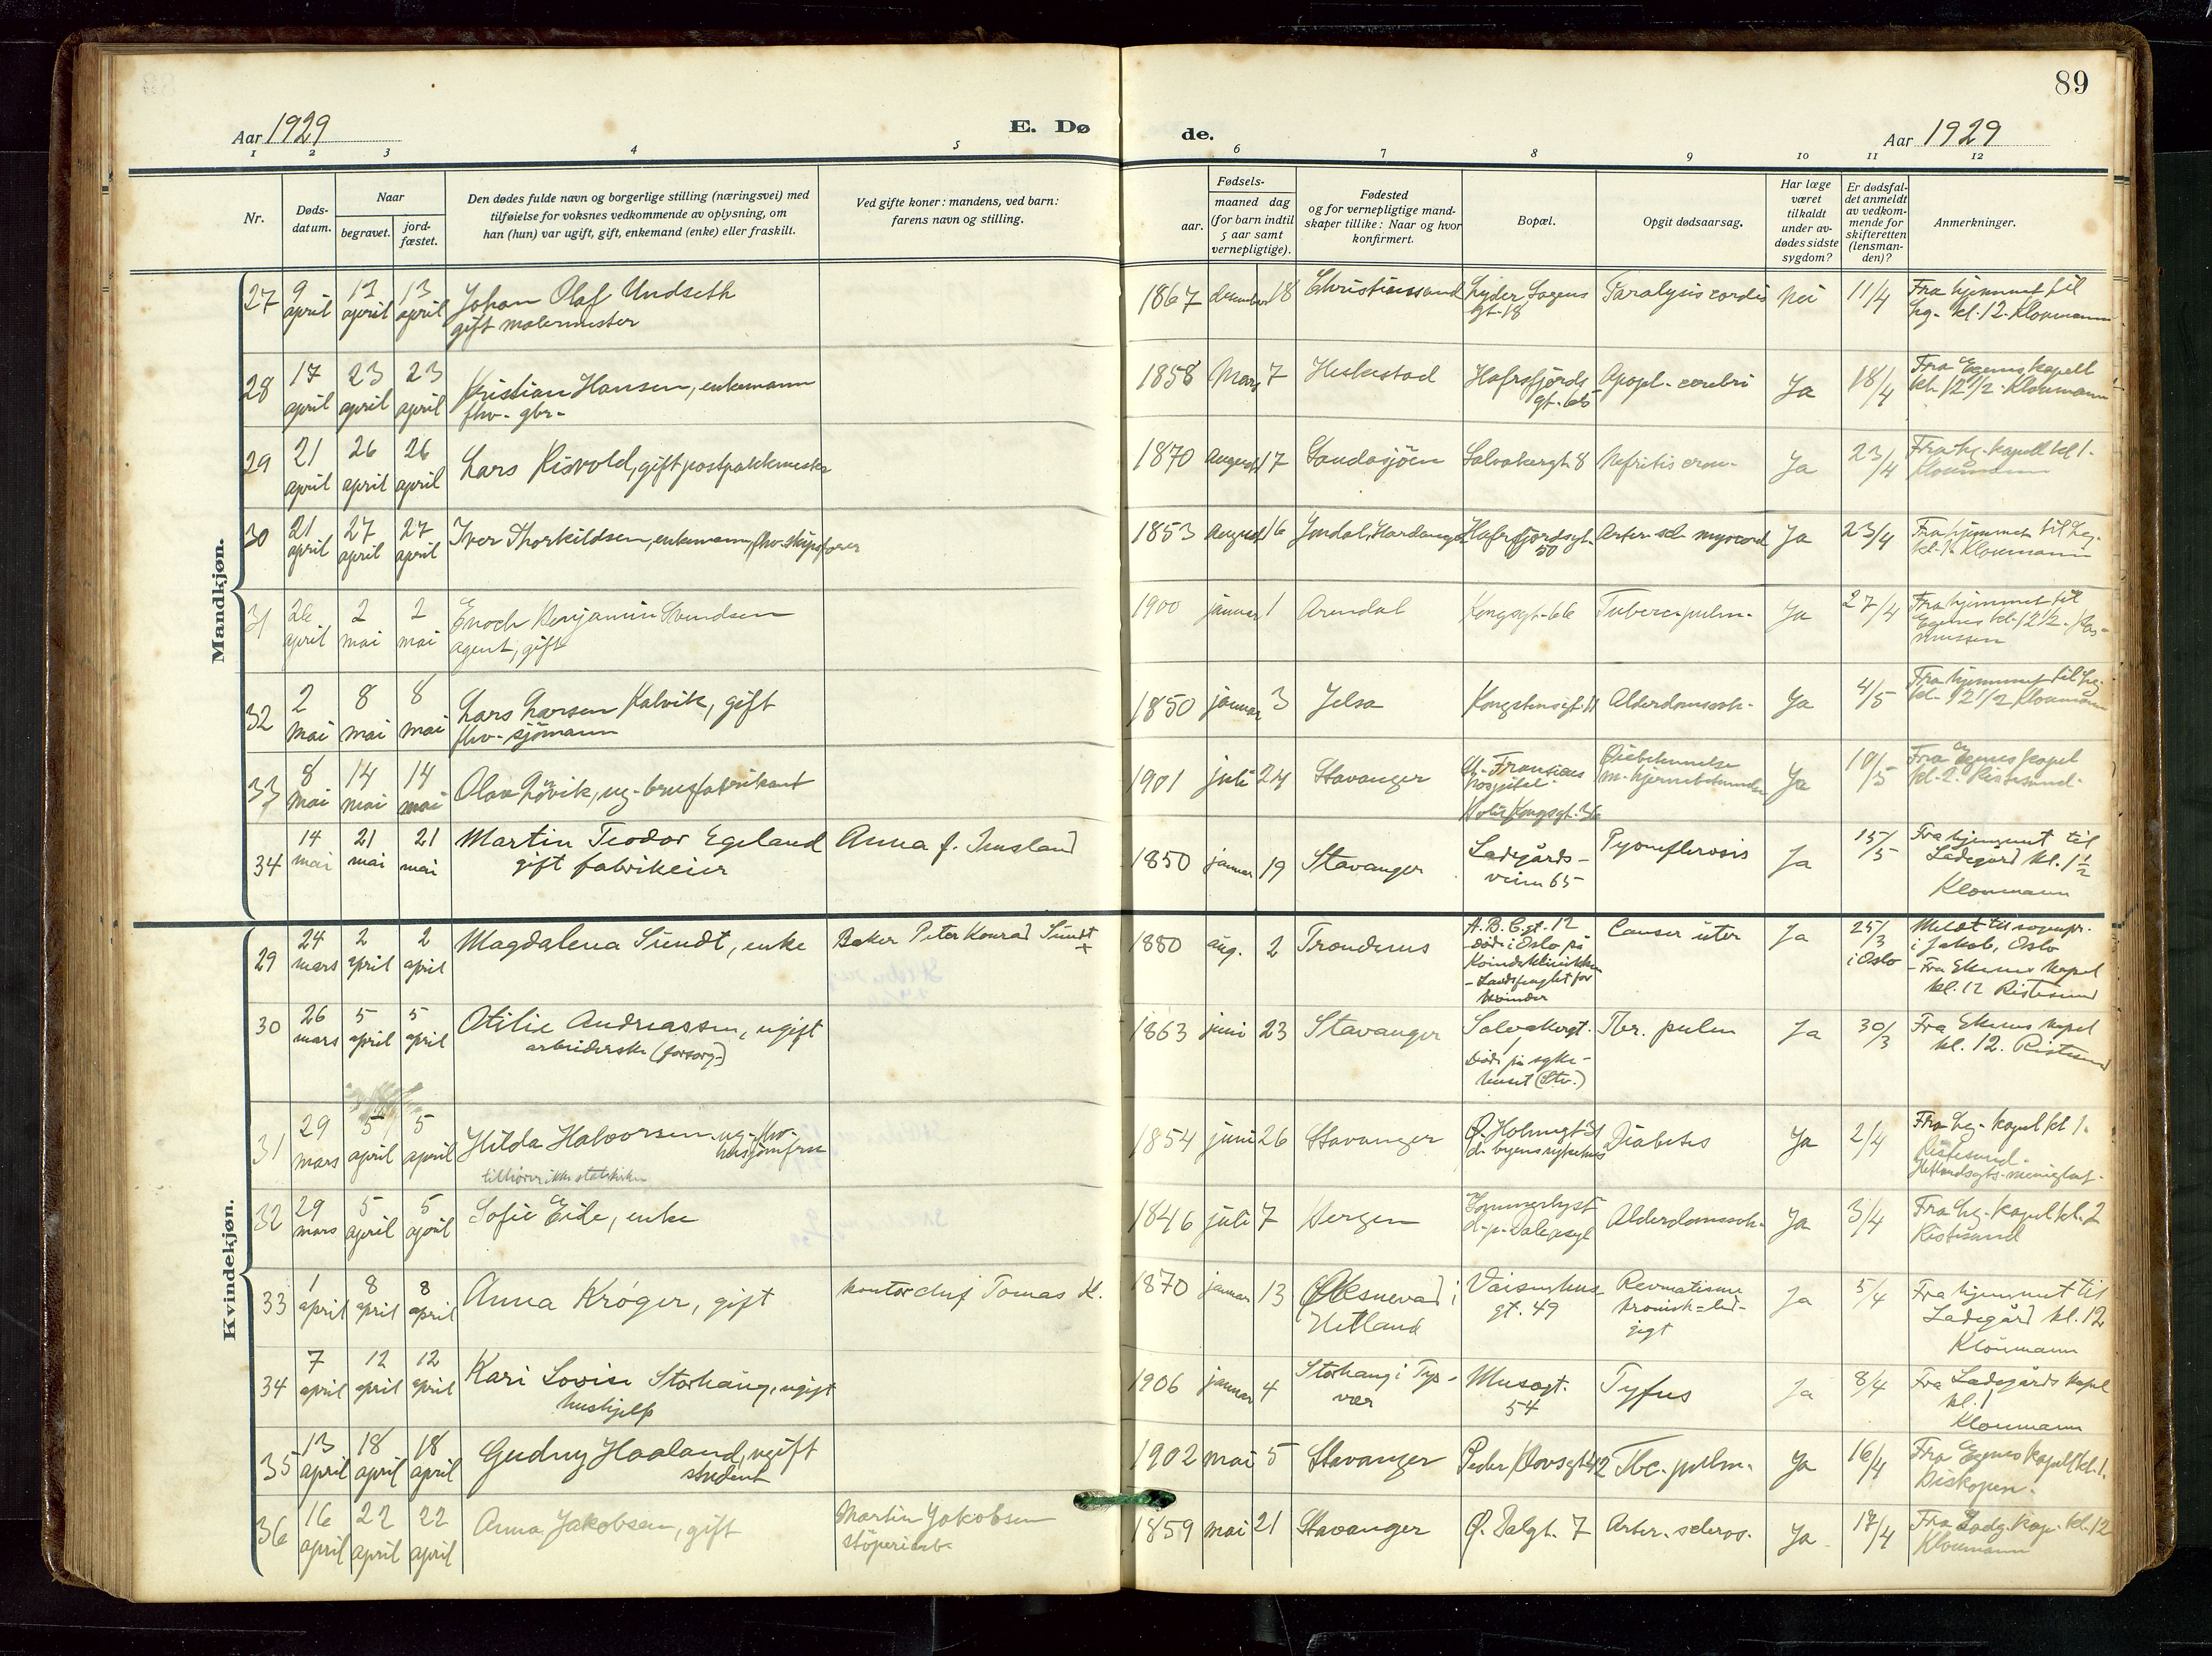 89
Aar 1929
E. Dø
de.
Aar 1929
1 2 3 4 5 6 7 8 9 10 11 12
Nr.
Døds-
datum.
Naar
begravet.
jord-
fæstet.
Den dødes fulde navn og borgerlige stilling (næringsvei) med
tilføielse for voksnes vedkommende av oplysning, om
han (hun) var ugift, gift, enkemand (enke) eller fraskilt.
Ved gifte koner: mandens, ved barn:
farens navn og stilling.
Fødsels-
aar.
maaned dag
(for barn indtil
5 aar samt
vernepligtige).
Fødested
og for vernepligtige mand-
skaper tillike: Naar og hvor
konfirmert.
Bopæl.
Opgit dødsaarsag.
Har læge
været
tilkaldt
under av-
dødes sidste
sygdom?
Er dødsfal-
det anmeldt
av vedkom-
mende for
skifteretten
(lensman-
den)?
Anmerkninger.
Mandkjøn.
27 9 april 13 april 13 april Johan Olaf Undseth
gift malermester
1867 december 18 Christianssand Lyder Sagens
gt. 18
Paralysis cordis Nei 11/4 Fra hjemmet til
Lg. kl. 12. Kloumann
28 17 april 23 april 23 april Kristian Hansen, enkemann
fhv. gbr.
1858 Mars 7 Heskestad Hafrsfjords
gt. 65
Apopl. cerebri Ja 18/4 Fra Egenes kapell
kl. 12 1/2. Kloumann
29 21 april 26 april 26 april Lars Risvold, gift postpakkmester
1870 August 17 Sandasjöen Solvabergt. 8 Nefritis cron. Ja 23/4 Fra Lg. kapell kl 1.
Kloumann
30 21 april 27 april 27 april Iver Thorkildsen, enkemann, fhv. skipsfører
1853 August 16 Jondal, Hardanger Hafrsfjordsgt.
50
Arter. scl. myocard Ja 23/4 Fra hjemmet til Lg.
kl. 1. Kloumann
31 26 april 2 mai 2 mai Enoch Benjamin Svendsen
agent, gift
1900 januar 1 Arendal Kongsgt. 66 Tuberc. pulm. Ja 27/4 Fra hjemmet til
Egenes kl. 12 1/2. Ras-
mussen
32 2 mai 8 mai 8 mai Lars Larsen Kalvik, gift
fhv. sjömann
1850 januar 3 Jelsa Kongstensgt. 11 Alderdomssvk. Ja 4/5 Fra hjemmet til Lg.
kl. 12 1/2 Kloumann
33 8 mai 14 mai 14 mai Olav Lövik, ug. brusfabrikant
1901 juli 24 Stavanger St. Fransiscus
hospital
Kongsgt. 36
m. hjernebetennelse Ja 10/5 Fra Egenes kapel
kl. 2. Ristesund.
34 14 mai 21 mai 21 mai Martin Teodor Egeland
gift fabrikeier
Anna f. Imsland
1850 januar 19 Stavanger Ladegårds-
veien 65
Pyonefrosis Ja 15/5 Fra hjemmet til
Ladegård kl. 1 1/2
Kloumann
Kvindekjøn.
29 24 mars 2 april 2 april Magdalena Sundt, enke Baker Peter Konrad Sundt
+
1880 aug. 2 Trondenes A.B.C. gt. 12
död i Oslo på
Kvindeklinikken
- Landsfengslet for
kvinder
Cancer uter Ja 25/3
i Oslo
Meldt til sognepr.
i Jakob, Oslo
- Fra Ekenes kapel
kl. 12 Ristesund
30 26 mars 5 april 5 april Otilie Andreassen, ugift
arbeiderske (forsorg.)
1863 juni 23 Stavanger Solvabergt.
1
Död på syke-
huset (Stv.)
Tbr. pulm Ja 30/3 Fra Ekenes kapel
kl. 12. Ristesund
31 29 mars 5 april 5 april Hilda Halvorsen. ug. fhv.
husjomfru
tilhører ikke statskirken
1854 juni 26 Stavanger Ø. Holmegt 21
d. byens sykehus
Diabetes Ja 2/4 Fra Lg. kapel kl 1.
Ristesund.
Hetlandsgts. menighet.
32 29 mars 5 april 5 april Sofie Eide, enke
1846 juli 7 Bergen Sommerlyst
d. p. Dale asyl
Alderdomssvk. Ja 3/4 Fra Lg. kapel kl. 2
Ristesund
33 1 april 8 april 8 april Anna Krøger, gift kontorchef Tomas K.
1870 januar 13 Oksnevad i
Hetland
Vaisenhus
gt. 49
Revmatisme
kronisk = led-
gigt
Ja 5/4 Fra hjemmet til
Ladegård kl. 12
Kloumann
34 7 april 12 april 12 april Kari Lovise Storhaug, ugift
hushjelp
1906 januar 4 Storhaug i Tys-
vær
Musegt.
54
Tyfus Ja 8/4 Fra Ladegårds kapel
kl. 1
Kloumann
35 13 april 18 april 18 april Gudny Haaland, ugift
student
1902 mai 5 Stavanger Peder Klowsgt 42 Tbc. pulm. Ja 16/4 Fra Egenes kapel kl. 1.
Biskopen.
36 16 april 22 april 22 april Anna Jakobsen, gift Martin Jakobsen
stöperiarb.
1859 mai 21 Stavanger Ø. Dalgt. 7 Arter. scleros. Ja 17/4 Fra Ladg. kap. kl. 12
Kloumann